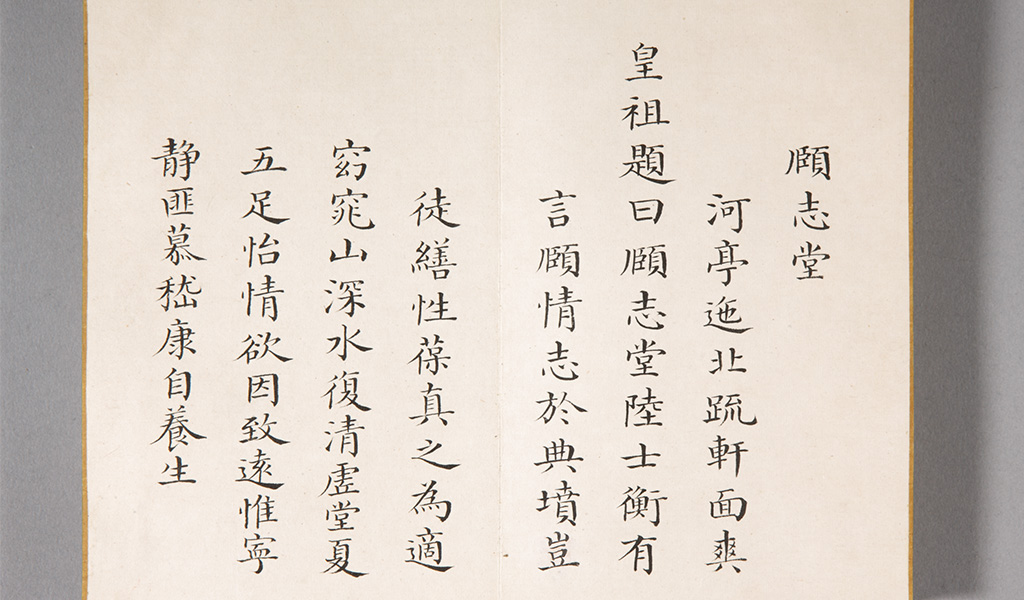 頤志堂
河亭迤北疏軒面爽
皇祖題曰頤志堂陸士衡有
言頤情志於典墳豈
徒繕性葆真之為適
窈窕山深水復清虛堂夏
五足怡情欲因致遠惟寧
静匪慕嵇康自養生